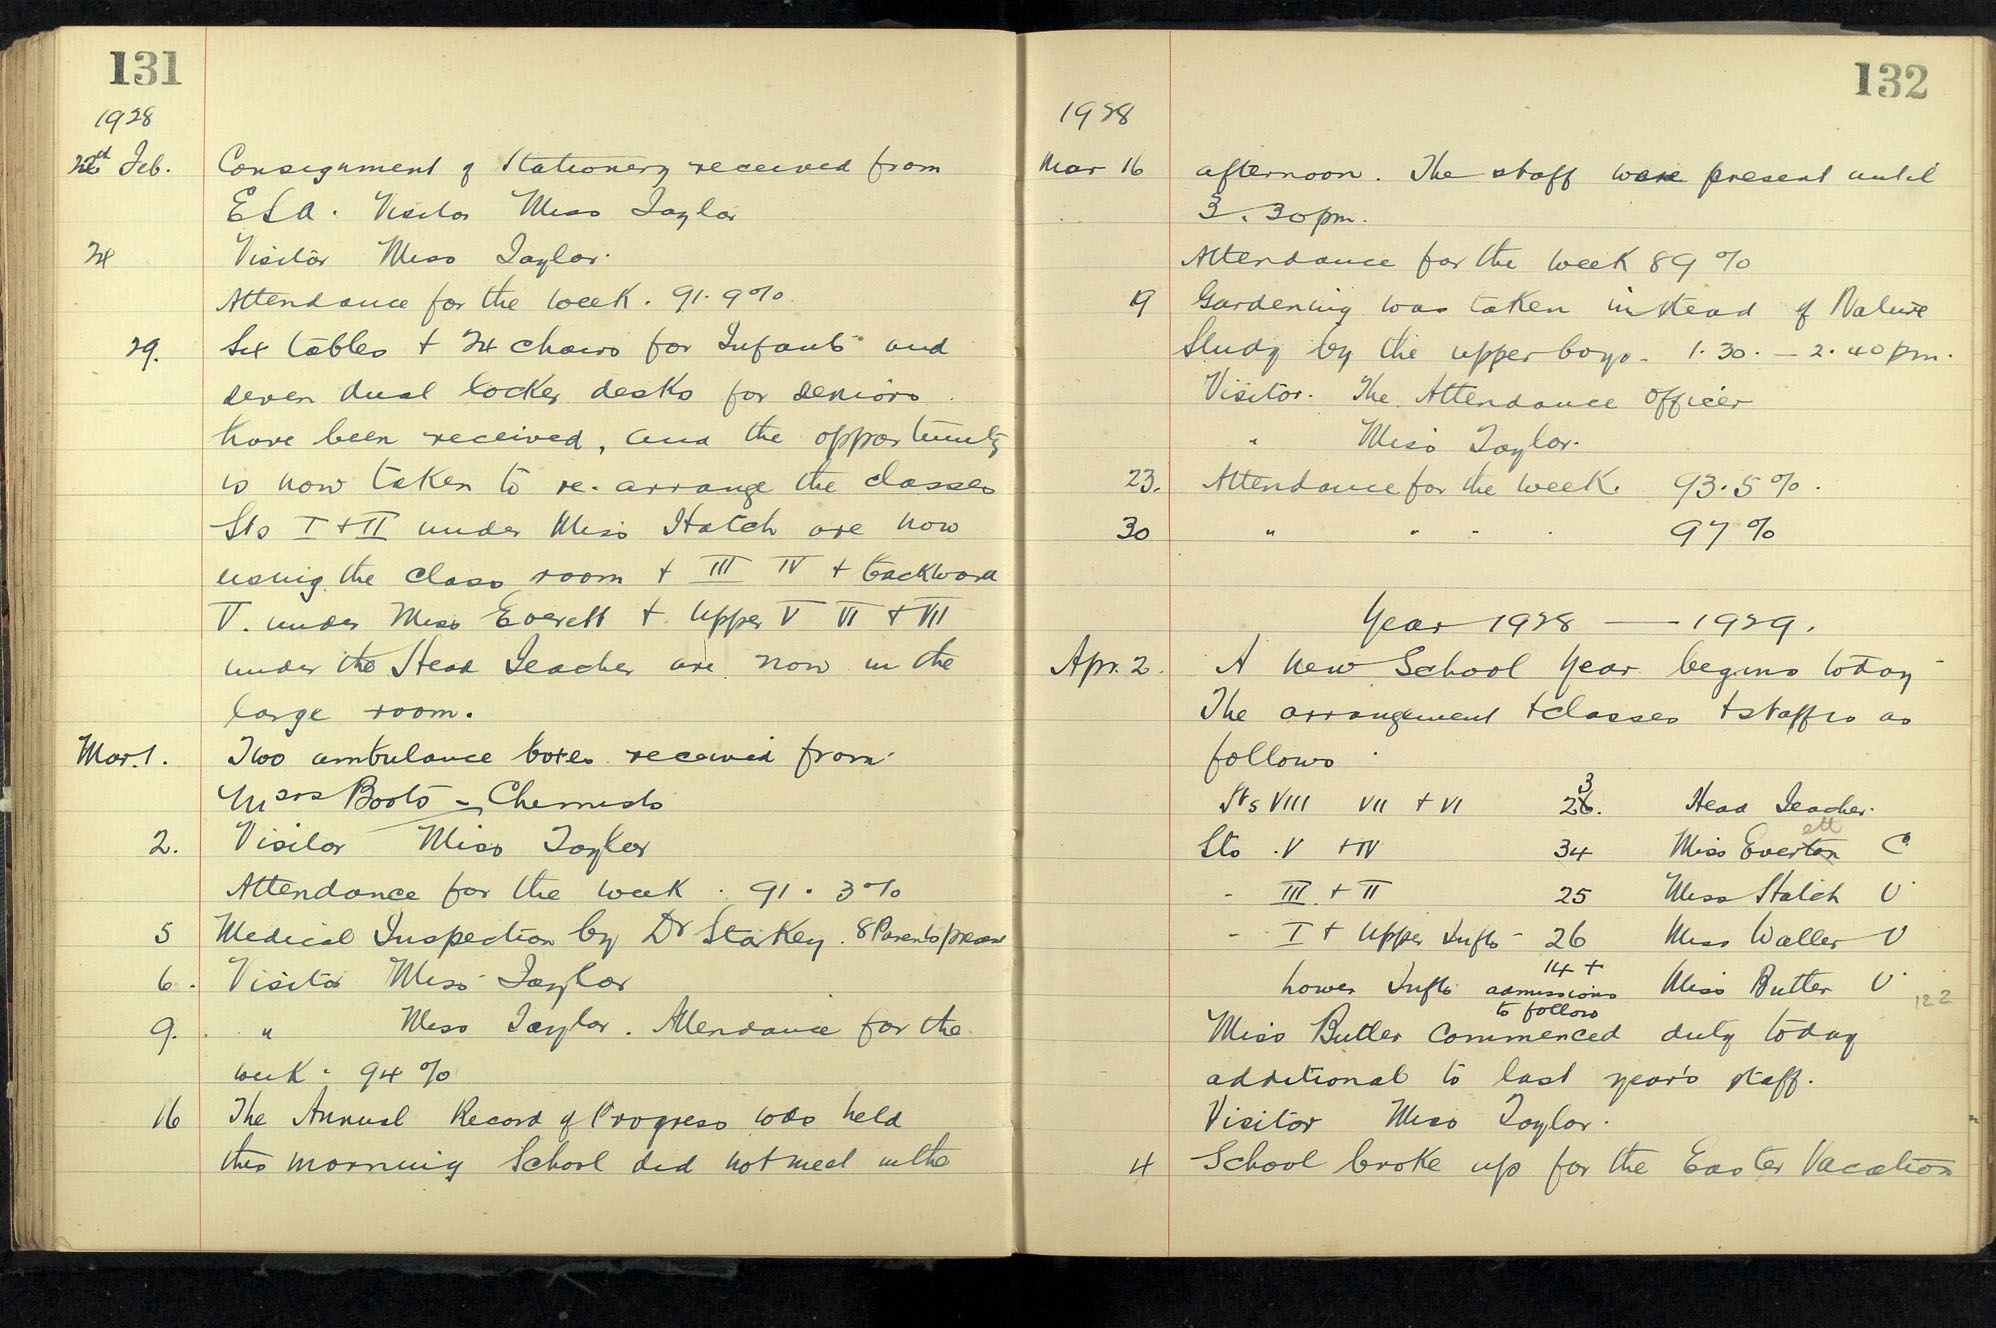 131
1928
Feb. Consignment of Stationery received from
ESA. Visitor Miss Taylor
24 Visitor Miss Taylor.
Attendance for the week. 91.9%.
29. Six tables + 24 chairs for Infants and
seven dual locker desks for seniors.
have been received, and the opportunity
is now taken to re-arrange the classes
Sts I + II under Miss Hatch are now
using the class room + III IV + backward
V. under Miss Everett + Upper V VI + VII
under the Head Teacher are now in the
large room.
Mar. 1. Two ambulance boxes received from
Messrs Boots – Chemists
2. Visitor Miss Taylor
Attendance for the week. 91.3%
5 Medical Inspection by Dr Starkey. 8 Parents present
6. Visitor Miss Taylor
9. " Miss Taylor. Attendance for the
week. 94%
16 The Annual Record of Progress was held
this morning School did not meet in the
132
1928
Mar 16 afternoon. The staff were present until
3.30pm.
Attendance for the week 89%
19 Gardening was taken instead of Nature
Study by the upper boys. 1.30. – 2.40pm.
Visitor. The Attendance Officer
" Miss Taylor.
23. Attendance for the week. 93.5%.
30 " " " 97%
Year 1928 — 1929.
Apr. 2. A new School Year begins today
The arrangement + classes + staff is as
follows
Sts VIII VII + VI 23. Head Teacher.
Sts. V + IV 34 Miss Everett C
" III + II 25 Miss Hatch U
" I + Upper Infts 26 Miss Waller U
Lower Infts 14 + admissions to follow Miss Butler U
122
Miss Butler commenced duty today
additional to last year's staff.
Visitor Miss Taylor.
4 School broke up for the Easter Vacation